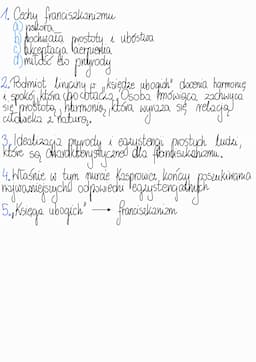 1. Cechy franciszkanizmu
a) pokora
b) pochwała prostoty i ubóstwa
c) akceptacja cierpienia
d) miłość do przyrody
2. Podmiot liryczny w "księdze ubogich" docenia harmonię
i spokój, która go otacza. Osoba mówiąca zachwyca
się prostotą, harmonią, która wyraża się relacją
człowieka z naturą.
3. Idealizacja przyrody i egzystencji prostych ludzi,
które są charakterystyczne dla franciszkanizmu.
4. Właśnie w tym nurcie Kasprowicz kończy poszukiwania
najważniejszych odpowiedzi egzystencjalnych
5. "Księga ubogich" → franciszkanizm